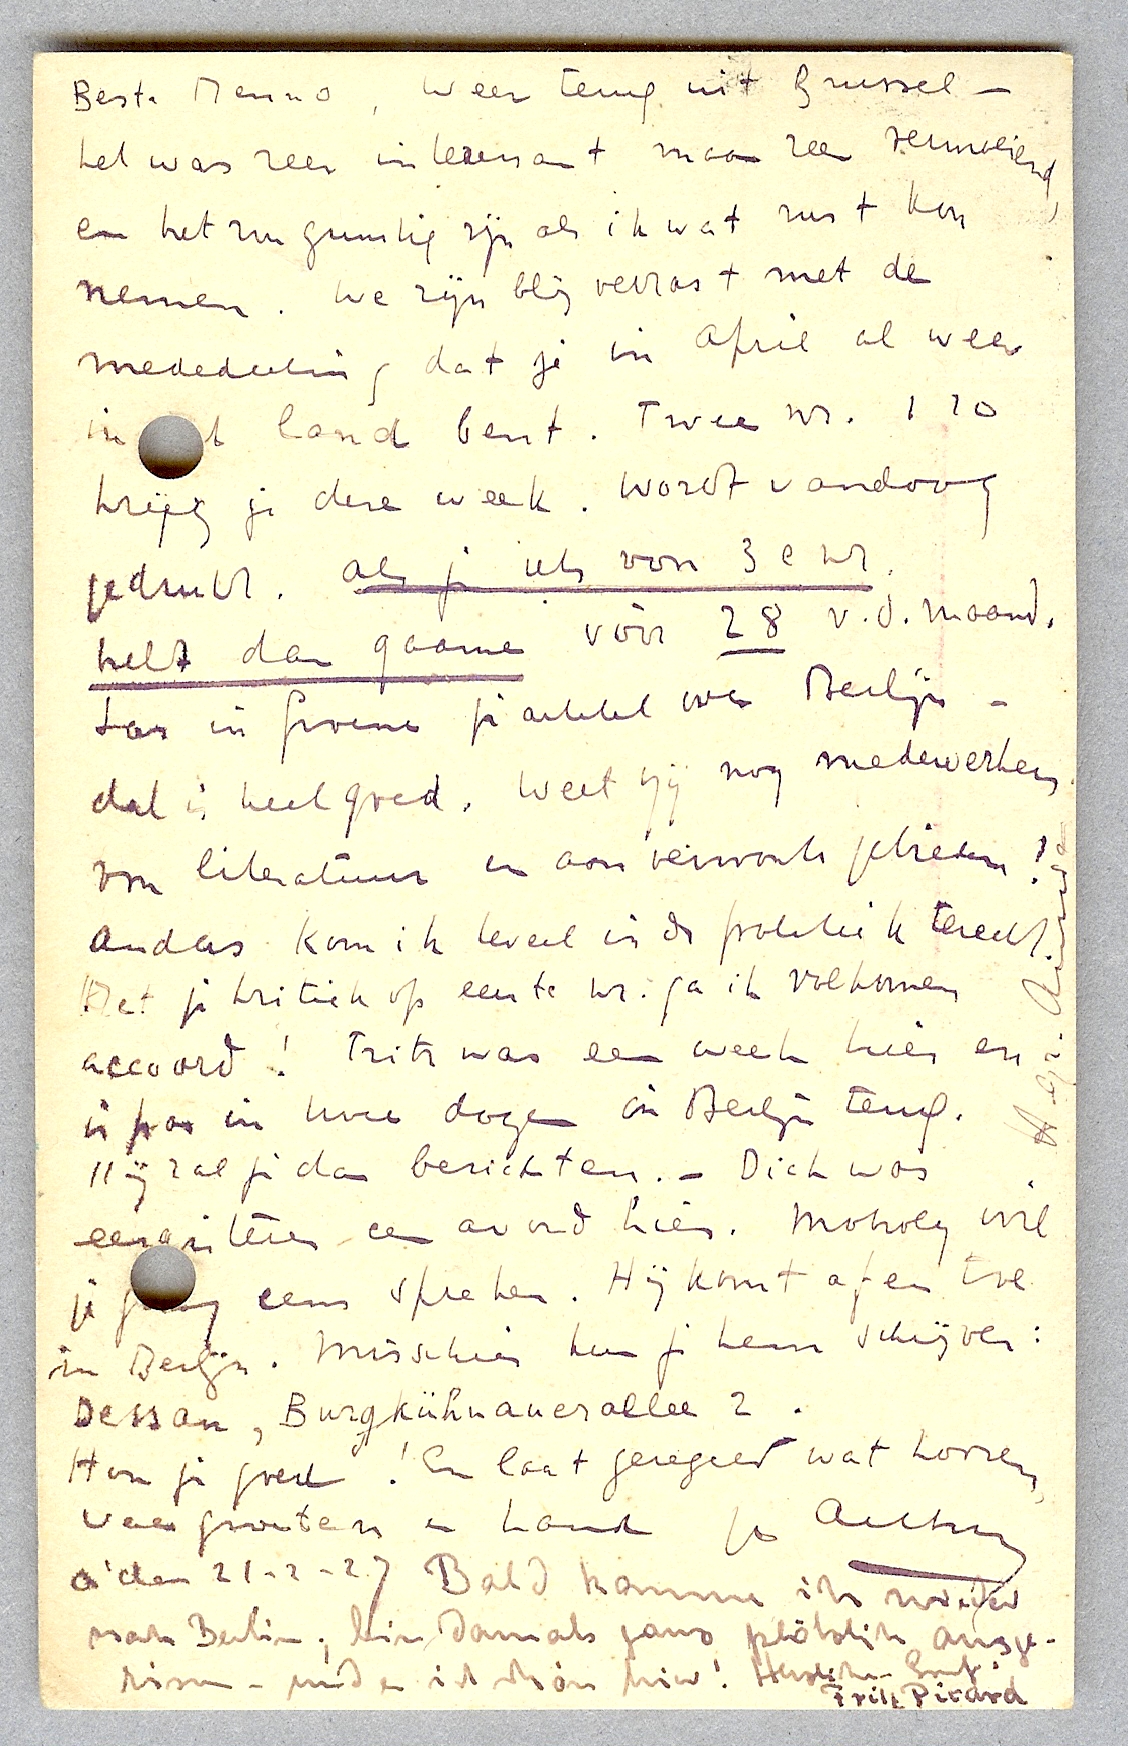 Beste Menno, weer terug uit Brussel –
het was zeer interessant maar zeer vermoeiend,
en het zou gunstig zijn als ik wat rust kon
nemen. We zijn blij verrast met de
mededeeling dat je in April al weer
in 't land bent. Twee nr. i 10
krijg je deze week. Wordt vandaag
gedrukt. als je iets voor 3e nr.
hebt dan gaarne vóór 28 v.d. maand.
Las in Groene je artikel over Berlijn –
dat is heel goed. Weet jij nog medewerkers
voor literatuur en aanverwante gebieden!
anders kom ik teveel in de politiek terecht.
Met je kritiek op eerste nr. ga ik volkomen
accoord! Frits was een week hier en
is pas in twee dagen in Berlijn terug.
Hij zal je dan berichten. – Dick was
eergisteren een avond hier. Moholy wil
je graag eens spreken. Hij komt af en toe
in Berlijn. Misschien kun je hem schrijven:
Dessau, Burgkühnauerallee 2.
Hou je goed! En laat geregeld wat hooren,
veel groeten en hand je Arthur
a'dam 21-2-27 Bald komme ich wieder
nach Berlin; bin damals ganz plötzlich ausge-
rissen – und es ist schön hier! Herzliche Grüße
Fritz Picard